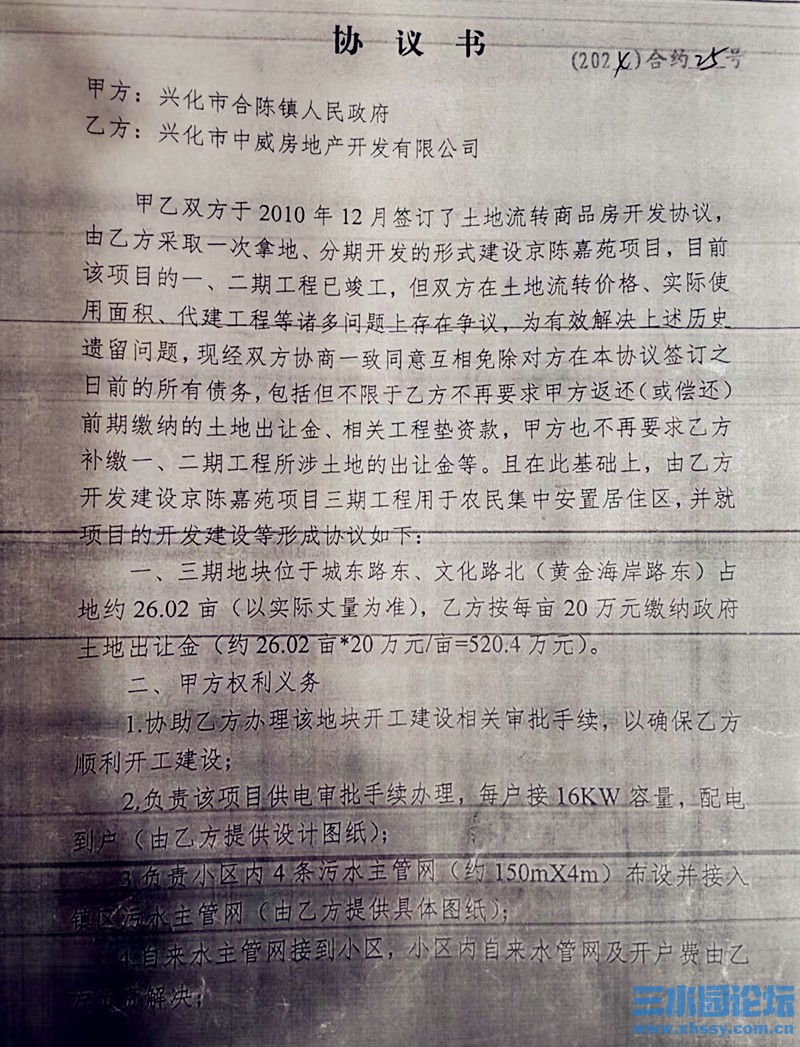 协 议 书
(202 )合约25号
甲方：兴化市合陈镇人民政府
乙方：兴化市中威房地产开发有限公司
甲乙双方于 2010 年 12 月签订了土地流转商品房开发协议，
由乙方采取一次拿地、分期开发的形式建设京陈嘉苑项目，目前
该项目的一、二期工程已竣工，但双方在土地流转价格、实际使
用面积、代建工程等诸多问题上存在争议，为有效解决上述历史
遗留问题，现经双方协商一致同意互相免除对方在本协议签订之
日前的所有债务，包括但不限于乙方不再要求甲方返还（或偿还）
前期缴纳的土地出让金、相关工程垫资款，甲方也不再要求乙方
补缴一、二期工程所涉土地的出让金等。且在此基础上，由乙方
开发建设京陈嘉苑项目三期工程用于农民集中安置居住区，并就
项目的开发建设等形成协议如下：
一、三期地块位于城东路东、文化路北（黄金海岸路东）占
地约 26.02 亩（以实际丈量为准），乙方按每亩 20 万元缴纳政府
土地出让金（约 26.02 亩*20 万元/亩=520.4 万元）。
二、甲方权利义务
1.协助乙方办理该地块开工建设相关审批手续，以确保乙方
顺利开工建设；
2.负责该项目供电审批手续办理，每户接 16KW 容量，配电
到户（由乙方提供设计图纸）；
3.负责小区内 4 条污水主管网（约 150mX4m）布设并接入
镇区污水主管网（由乙方提供具体图纸）；
4.自来水主管网接到小区，小区内自来水管网及开户费由乙
解决；
三水园论坛
www.xhssy.com